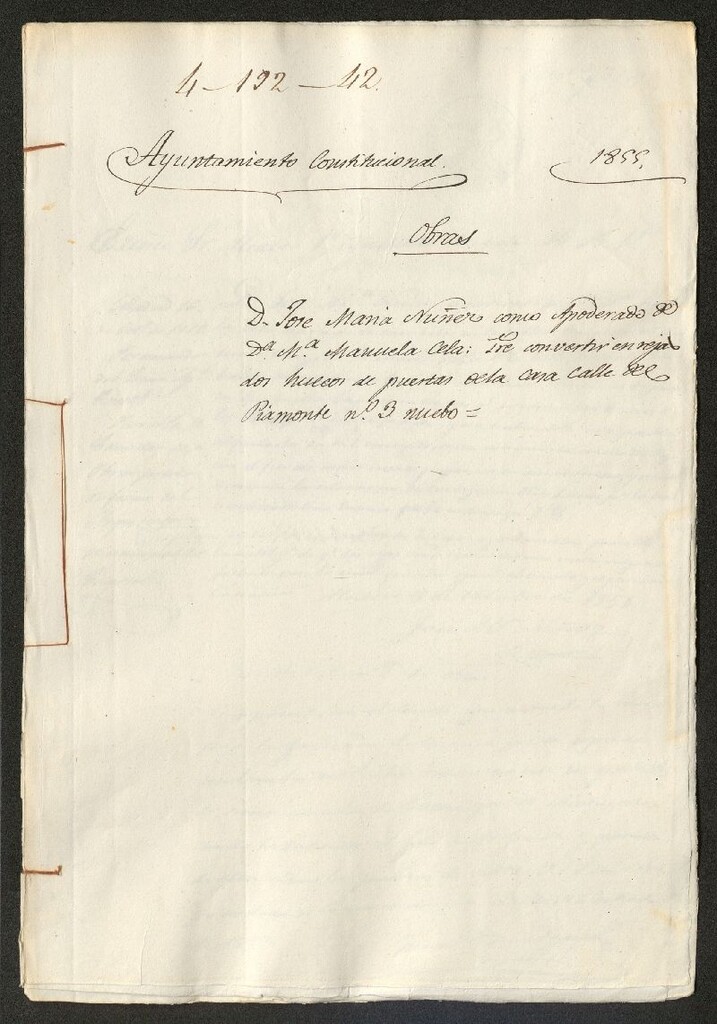 4-192-42.
Ayuntamiento Constitucional. 1855.
Obras
D. Jose Maria Nuñez como Apoderado de
Dª Mª Manuela Cela: Sre convertir en rejas
dos huecos de puertas dela casa Calle del
Piamonte nº 3 nuebo =